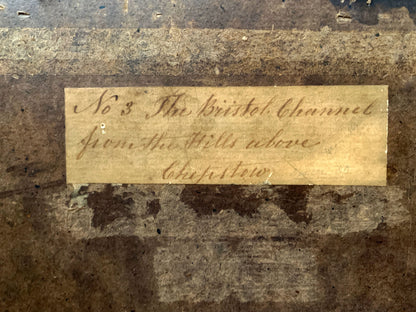 No 3 The Bristol Channel
from the Hills above
Chepstow